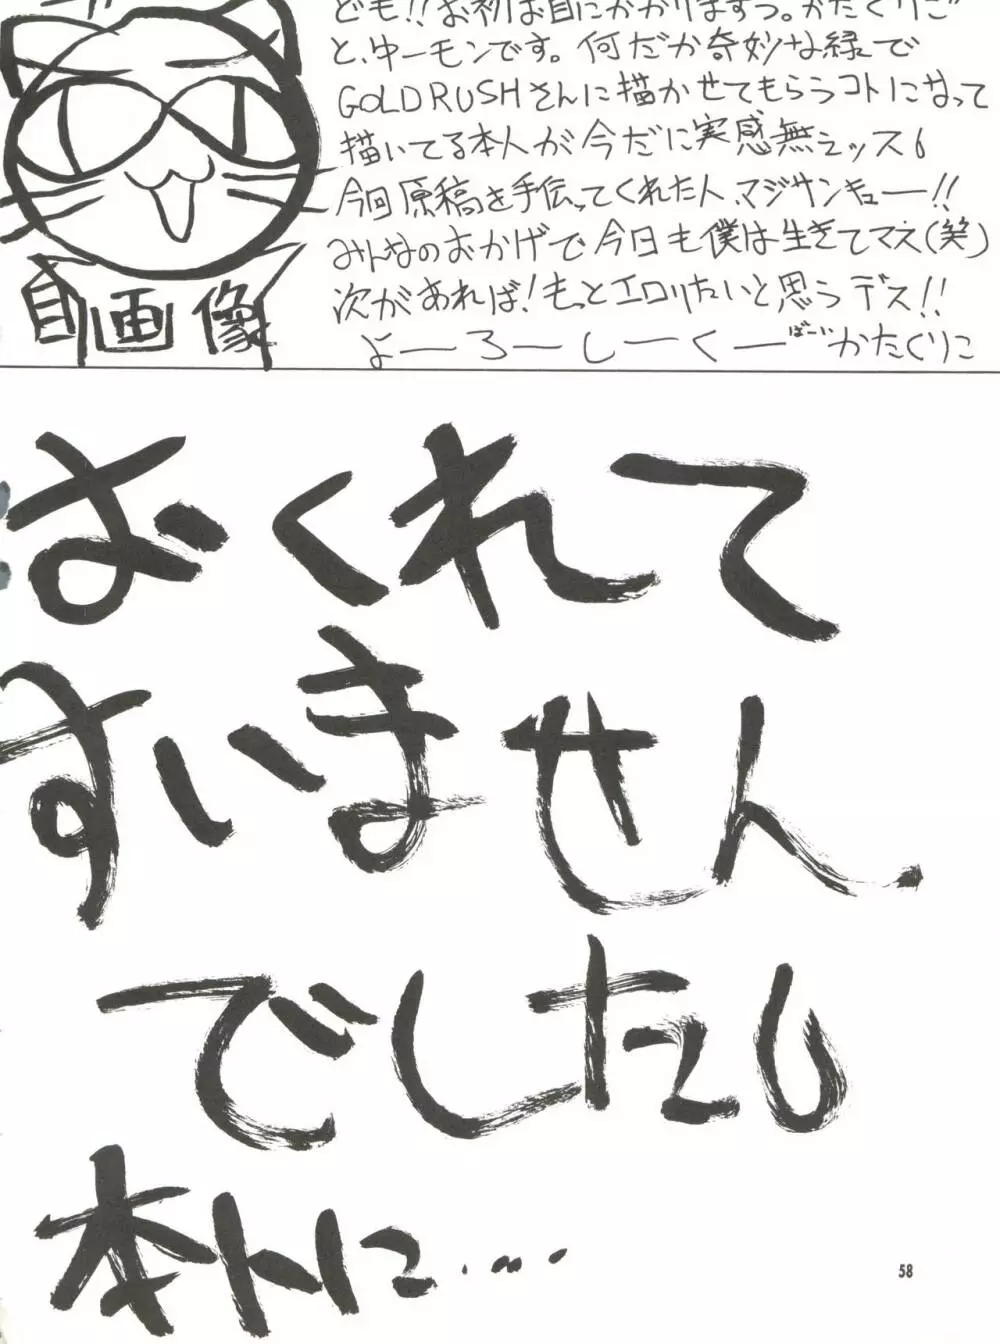 ども!!お初お目にかかりますっ。かたくりこ
と、ゆーモンです。何だか奇妙な縁で
GOLD RUSHさんに描かせてもらうコトになって
描いてる本人が今だに実感無えッス。
今回原稿を手伝ってくれた人、マジサンキュー!!
みんなのおかげで今日も僕は生きてマス(笑)
次があれば!もっとエロりたいと思うデス!!
よーろーしーくー ばーい かたくりこ
自画像
おくれて
すいません
でした。
本トに・・・・
58